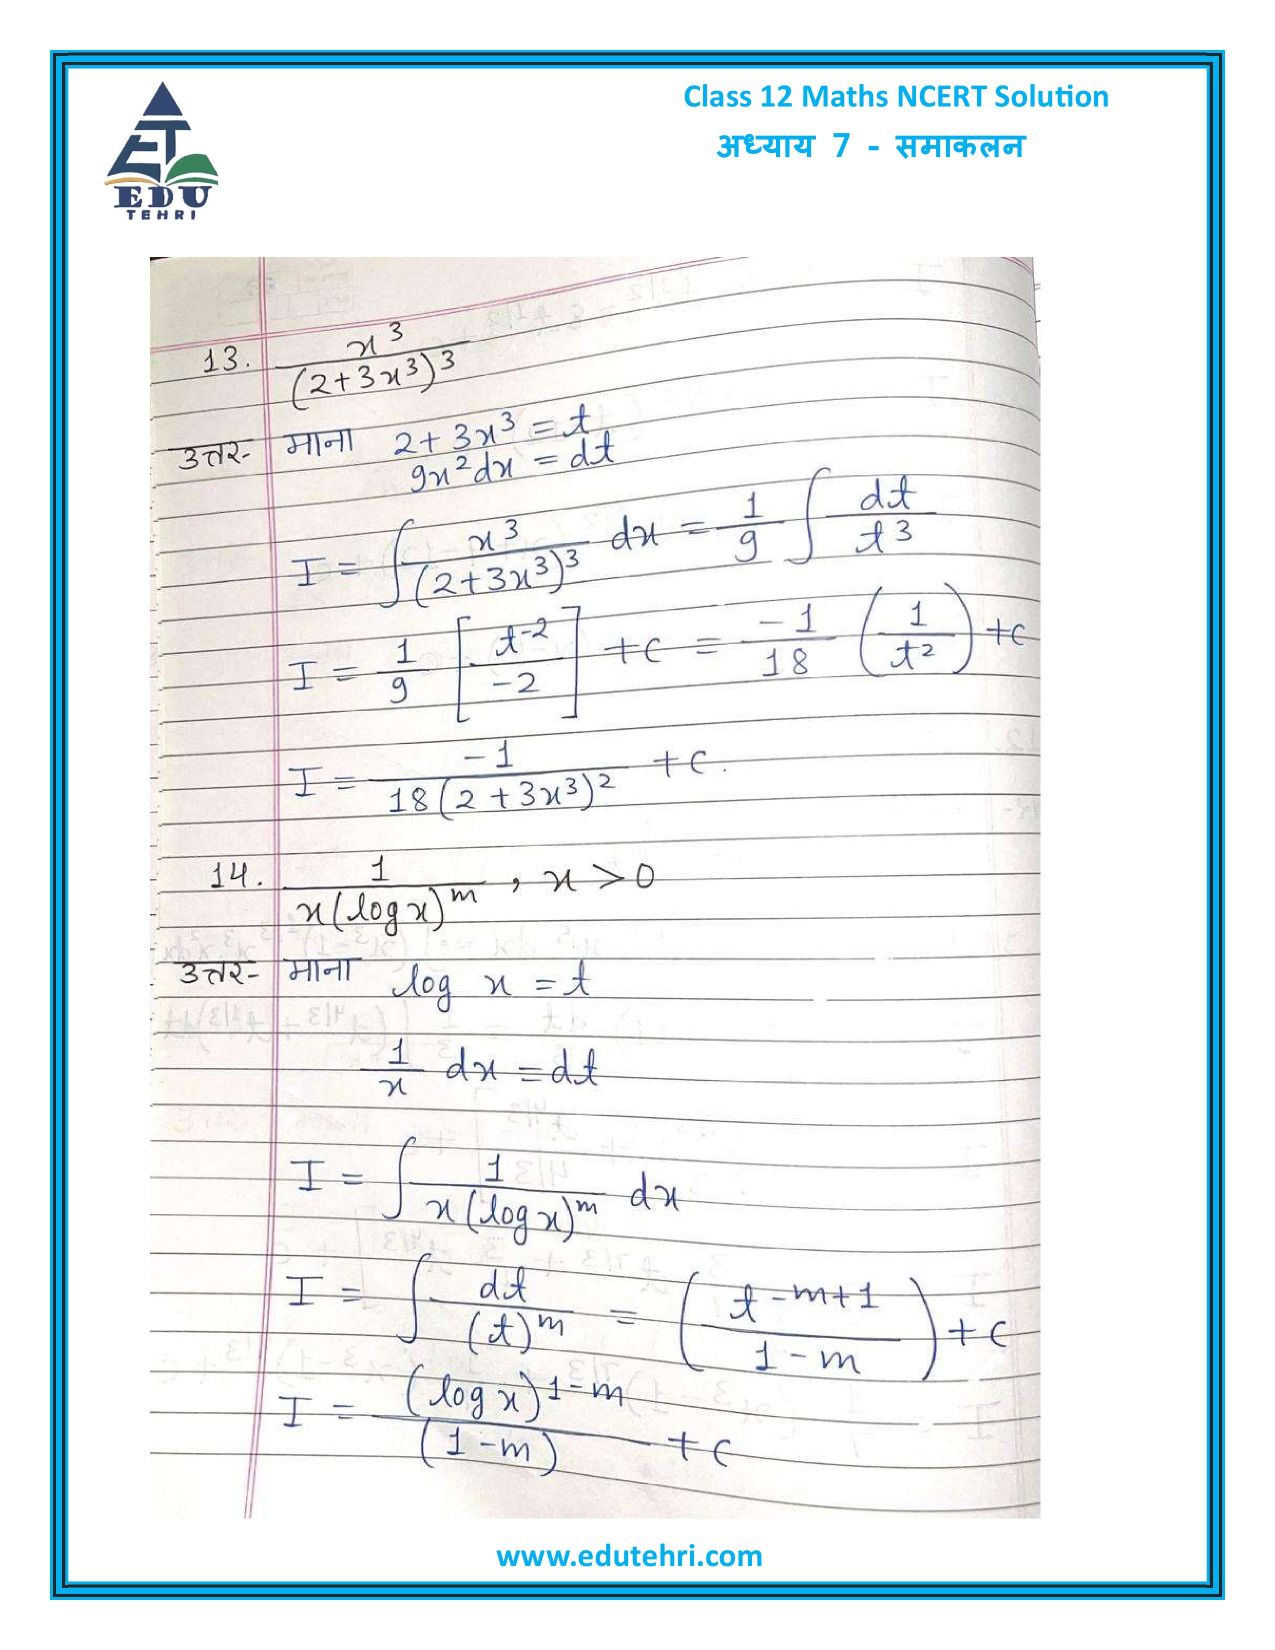 Class 12 Maths NCERT Solution
अध्याय 7 - समाकलन
EDU
TEHRI
13. x³/(2+3x³)³
उत्तर- माना 2+3x³ = t
9x²dx = dt
I = ∫ x³/(2+3x³)³ dx = 1/9 ∫ dt/t³
I = 1/9 [t⁻²/-2] + c = -1/18 (1/t²) + c
I = -1/18(2+3x³)² + c.
14. 1/x(log x)ᵐ , x > 0
उत्तर- माना log x = t
1/x dx = dt
I = ∫ 1/x(log x)ᵐ dx
I = ∫ dt/(t)ᵐ = (t^-m+1/1-m) + c
I = (log x)^1-m/(1-m) + c
www.edutehri.com